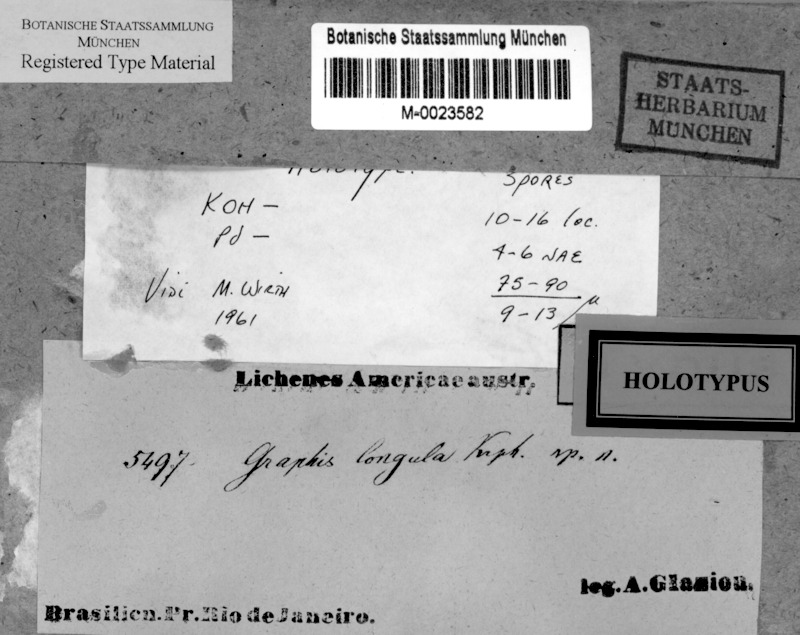 BOTANISCHE STAATSSAMMLUNG
MÜNCHEN
Registered Type Material
Botanische Staatssammlung München
M-0023582
STAATS-
HERBARIUM
MÜNCHEN
Holotype.
KOH –
Pd –
Vidi M. Wirth
1961
SPORES
10-16 loc.
4-6 NAE
75-90
9-13 µ
HOLOTYPUS
Lichenes Americae austr.
5497. Graphis longula Krph. sp. n.
leg. A. Glaziou.
Brasilien. Pr. Rio de Janeiro.